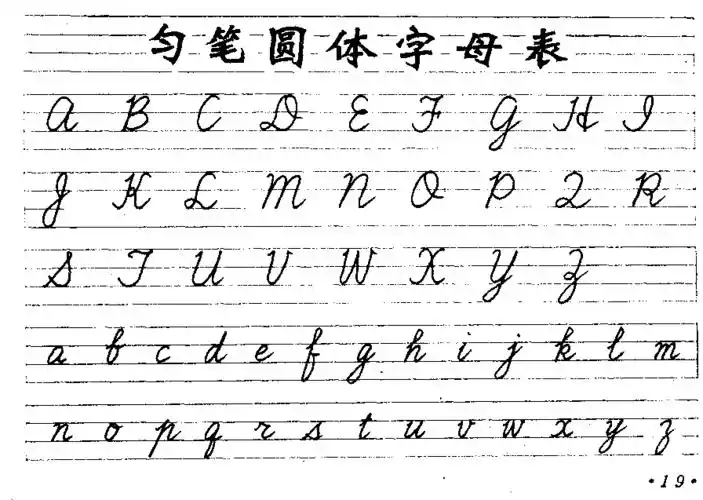 匀笔圆体字母表
A B C D E F G H I
J K L M N O P Q R
S T U V W X Y Z
a b c d e f g h i j k l m
n o p q r s t u v w x y z
·19·